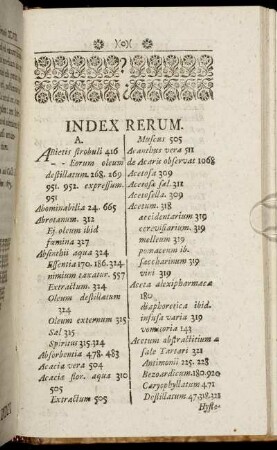 INDEX RERUM.
A.
Abietis strobuli 416
- - Eorum oleum
destillatum. 268. 269
951. 952. expressum.
951
Abominabilia 24. 665
Abrotanum. 312
Ej. oleum ibid
fumina 327
Absinthii aqua 324
Essentia 170. 186. 324
nimium taxatur. 557
Extractum. 314
Oleum destillatum
324
Oleum externum 315
Sal 315
Spiritus 315. 324
Absorbentia 478. 483
Acacia vera 504
Acaciæ flor. aqua 310
505
Extractum 505
Mucus 505
Acanthus vera 511
de Acaris observat 1068
Acetosa 309
Acetosæ sal. 311
Acetosella. 309
Acetum. 318
accidentarium 319
cerevisiarium. 319
melleum 319
pomaceum ib.
saccharinum 319
vini 319
Aceta alexipharmaca
180.
diaphoretica ibid.
infusa varia 319
vomitoria 143
Acetum abstractitium a
sale Tartari 321
Antimonii 225. 228
Bezoardicum. 180. 920
Caryophyllatum 471
Destillatum 47. 318. 321
Hyste-